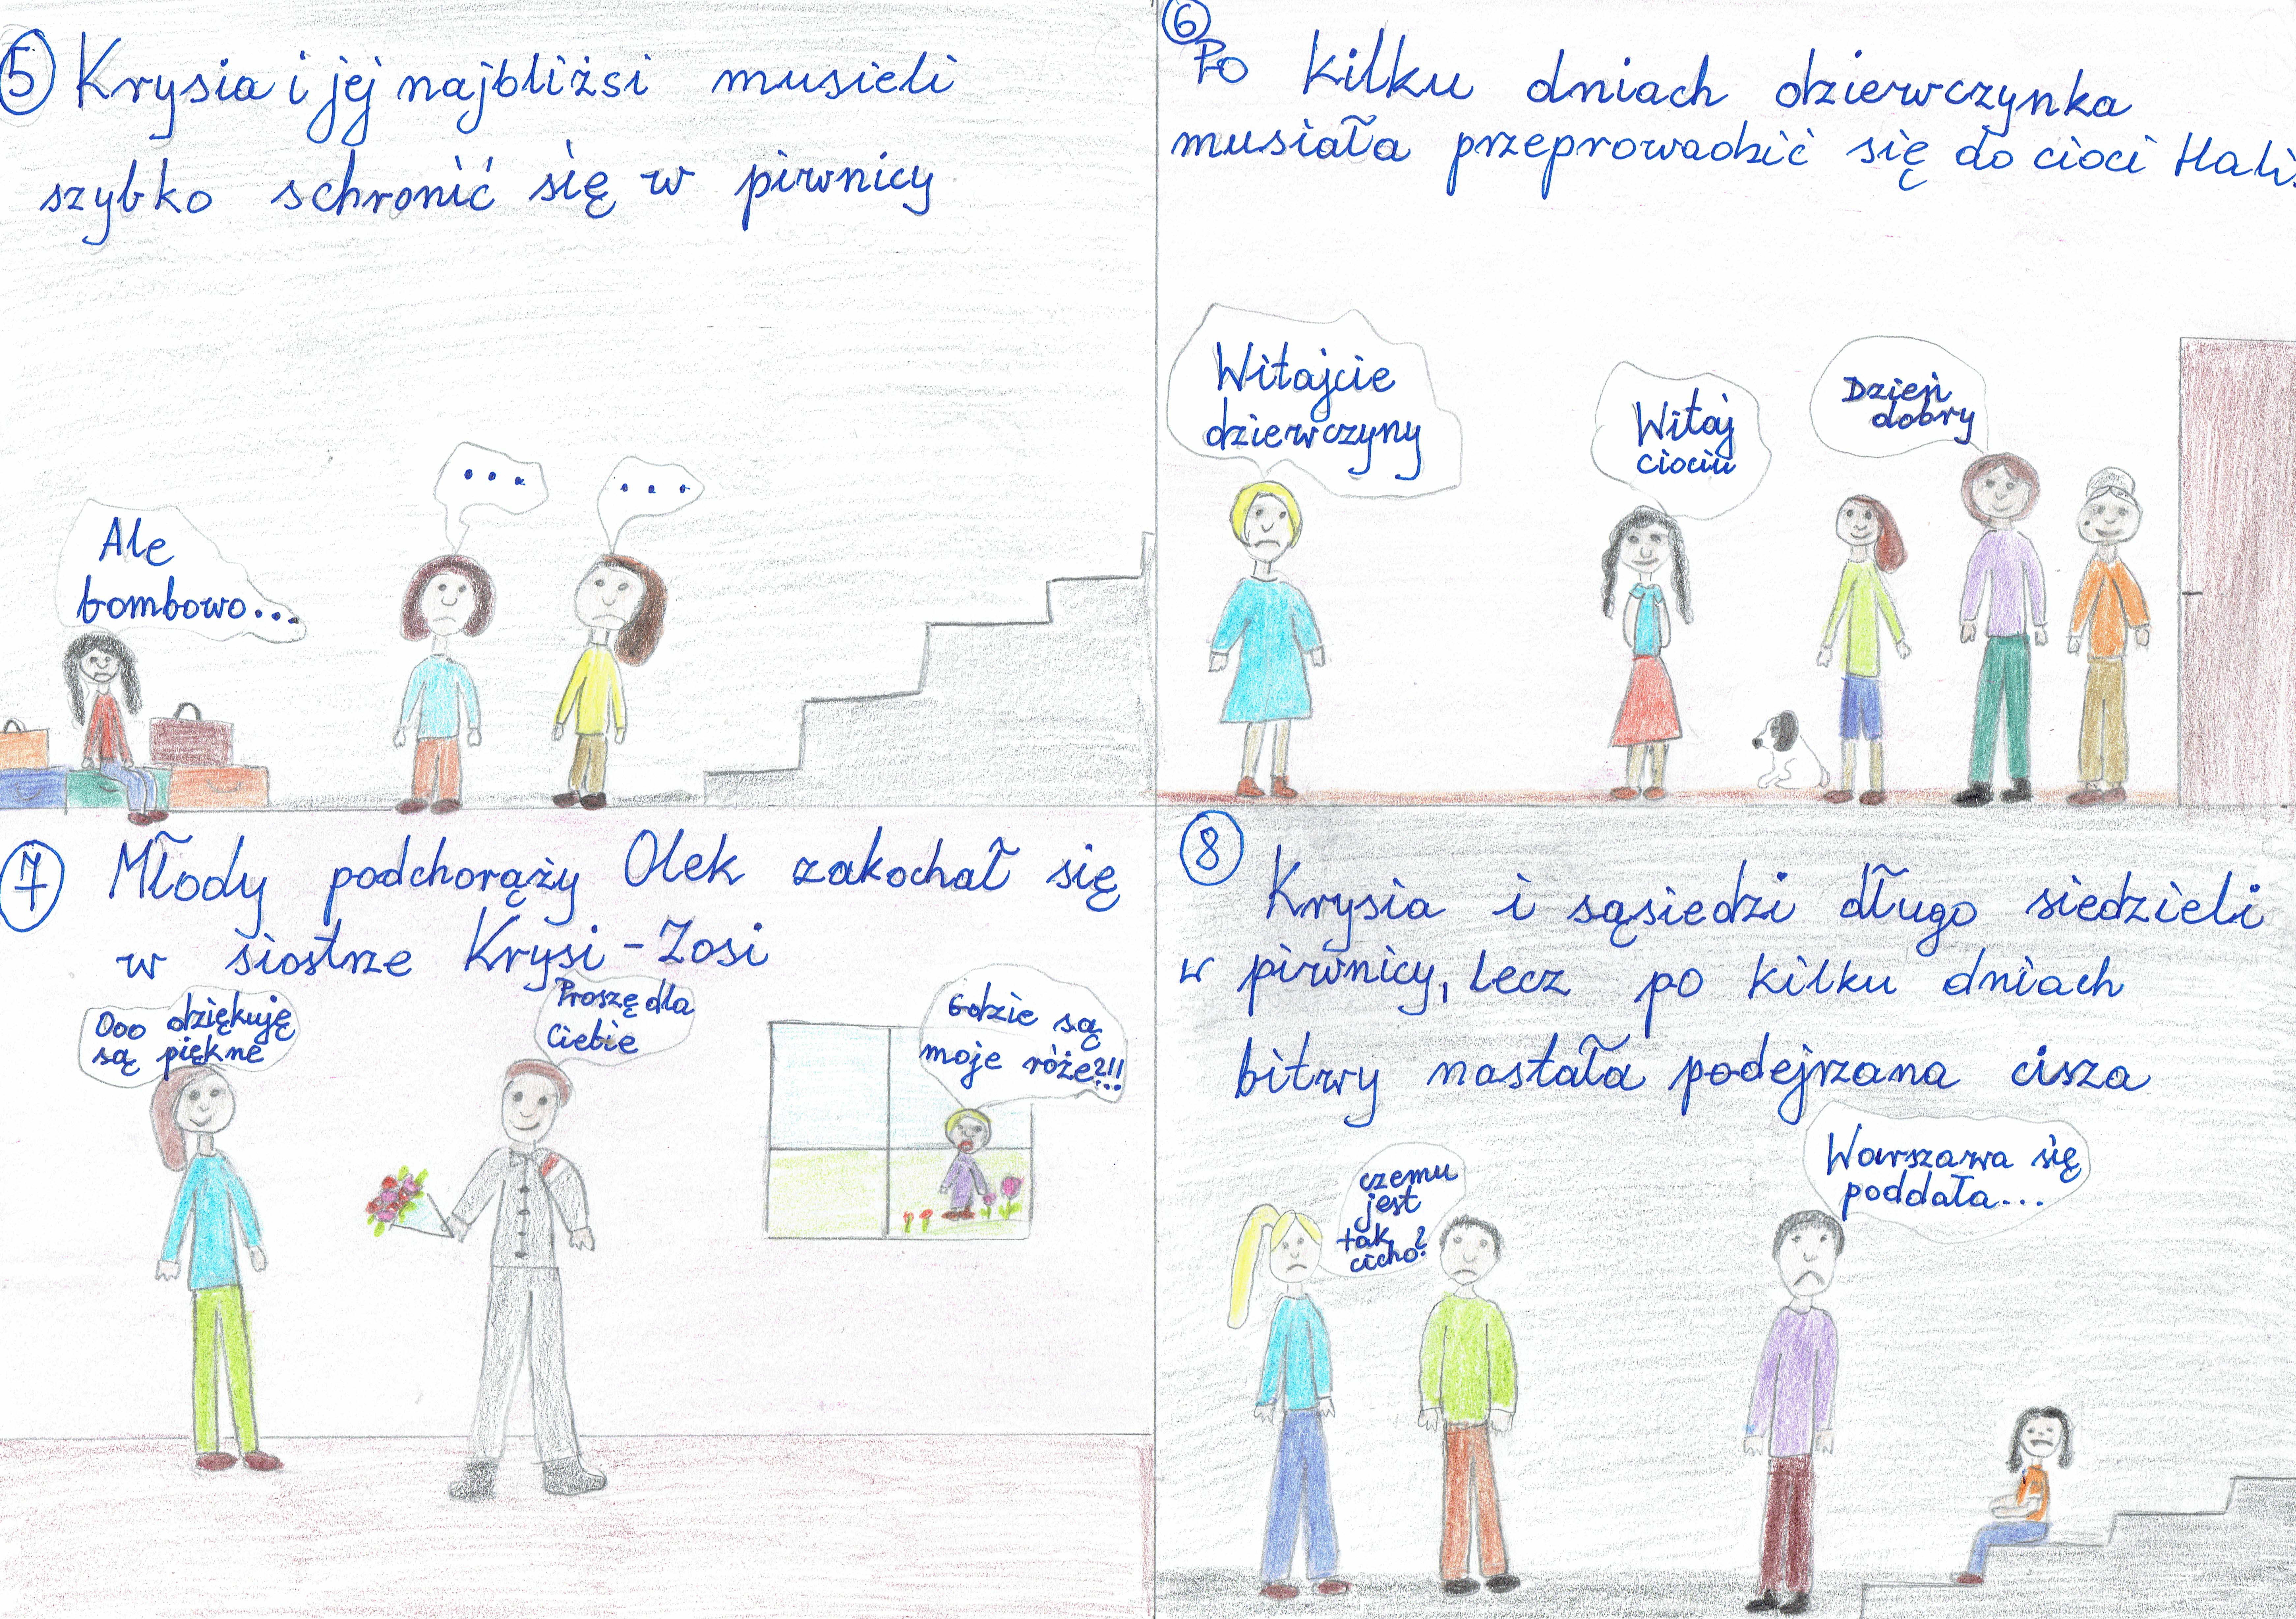 5 Krysia i jej najbliżsi musieli
szybko schronić się w piwnicy
Ale
bombowo...
...
...
6
Po kilku dniach dziewczynka
musiała przeprowadzić się do cioci Hali
Witajcie
dziewczyny
Witaj
ciociu
Dzień
dobry
7 Młody podchorąży Olek zakochał się
w siostrze Krysi - Zosi
Ooo dziękuję
są piękne
Proszę dla
Ciebie
Gdzie są
moje róże?!!
8
Krysia i sąsiedzi długo siedzieli
w piwnicy, lecz po kilku dniach
bitwy nastała podejrzana cisza
czemu
jest
tak
cicho?
Warszawa się
poddała...